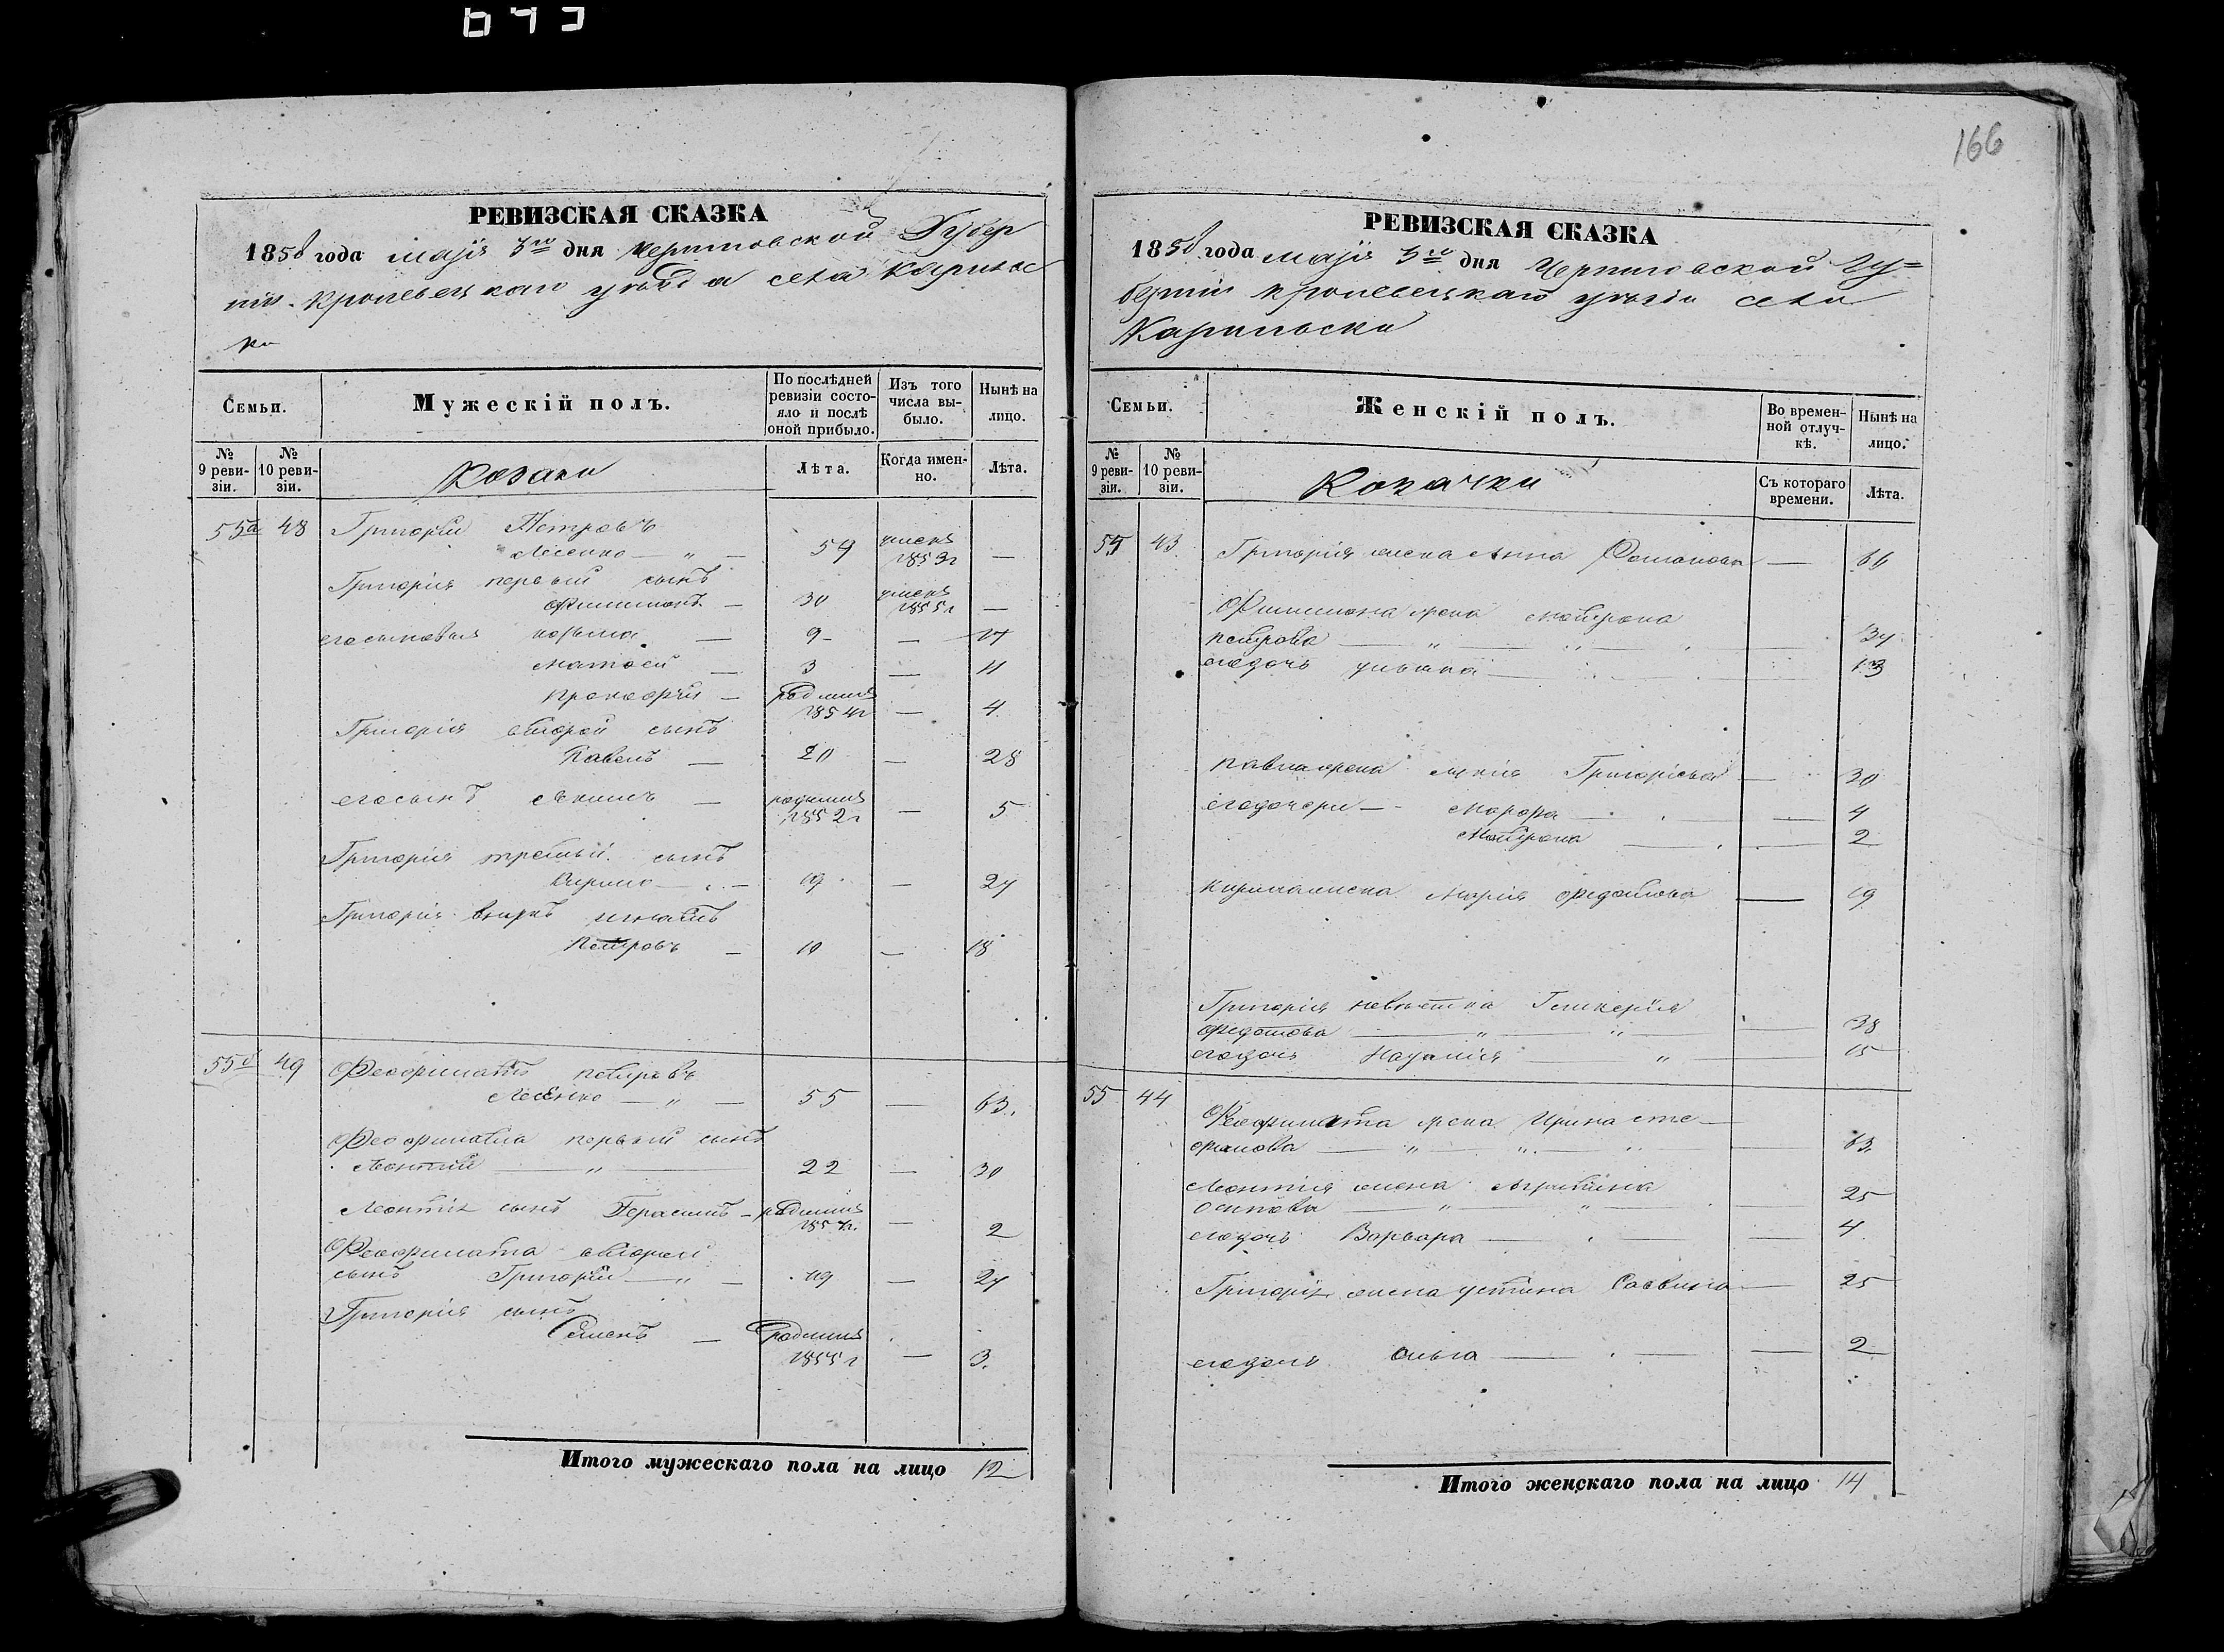 166
РЕВИЗСКАЯ СКАЗКА
1858 года маія 3го дня Черниговской Губер
ніи Кролевецкаго уезда села Карильс
ка
Семьи.
Мужескій полъ.
По послѣдней ревизіи состояло и послѣ оной прибыло.
Изъ того числа выбыло.
Нынѣ на лицо.
№ 9 ревизіи.
№ 10 ревизіи.
Козаки
Лѣта.
Когда именно.
Лѣта.
55а 48 Григорій Петровъ
Лесенко — " — 54 умеръ 1853г —
Григорія первый сынъ
Филимонъ — 30 умеръ 1855г —
его сыновья Козьма — 9 — 17
Матвей — 3 — 11
Прокофій — родился 1854г — 4
Григорія второй сынъ
Павелъ — 20 — 28
его сынъ Якимъ — родился 1852г — 5
Григорія третий сынъ
Кирило — 19 — 27
Григорія внукъ Игнатъ
Петровъ — 10 — 18
55 49 Феофилатъ Петровъ
Лесенко — " — 55 — 63.
Феофилата первый сынъ
Леонтий — " — 22 — 30
Леонтія сынъ Герасимъ — родился — 2
Феофилата второй
сынъ Григорій — " — 19 — 27
Григорія сынъ
Семенъ — родился 1855г — 3.
Итого мужескаго пола на лицо 12
РЕВИЗСКАЯ СКАЗКА
1858 года маія 3го дня Черниговской Гу=
берніи Кролевецкаго уезда села
Карильска
Семьи.
Женскій полъ.
Во временной отлучкѣ.
Нынѣ на лицо.
№ 9 ревизіи.
№ 10 ревизіи.
Козачки
Съ котораго времени.
Лѣта.
55 43 Григорія жена Анна — 66
Филимона жена Мотрона
Петрова — " — " — 37
его дочь Ульяна — 13
Павла жена Григорьева — 30
его дочери — Марфа — 4
Мотрона — 2
Кирила жена Марія Федотова — 19
Григорія невестка Гликерія
Федотова — " — " — 38
его дочь Наталія — " 15
55 44 Феофилата жена Ирина Сте—
фанова — " — " — " — 63
Леонтія жена Агрипина
Осипова — " — " — 25
его дочь Варвара — 4
Григорія жена Устина Саввина — 25
его дочь Ольга — 2
Итого женскаго пола на лицо 14